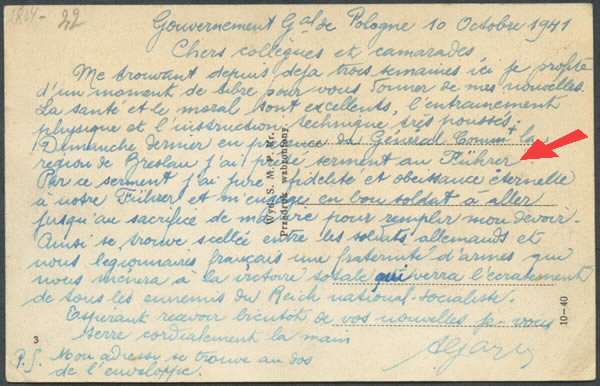 2824-22
Gouvernement Gal de Pologne 10 Octobre 1941
Chers collègues et camarades
Me trouvant depuis déjà trois semaines ici je profite
d'un moment de libre pour vous donner de mes nouvelles.
La santé et le moral sont excellents, l'entrainement
physique et l'instruction technique très poussés.
Dimanche dernier en présence du Général Commt la
région de Breslau j'ai prêté serment au Führer.
Par ce serment j'ai juré fidélité et obéissance éternelle
à notre Führer et m'engage en bon soldat à aller
jusqu'au sacrifice de ma vie pour remplir mon devoir.
Ainsi se trouve scellée entre les soldats allemands et
nous légionnaires français une fraternité d'armes qui
nous mènera à la victoire totale qui verra l'écrasement
de tous les ennemis du Reich national-socialiste.
Espérant recevoir bientôt de vos nouvelles je vous
serre cordialement la main
P.S. Mon adresse se trouve au dos
de l'enveloppe.
Wyd. S. M. P. Kr.
Przedruk wzbroniony.
3
10-40